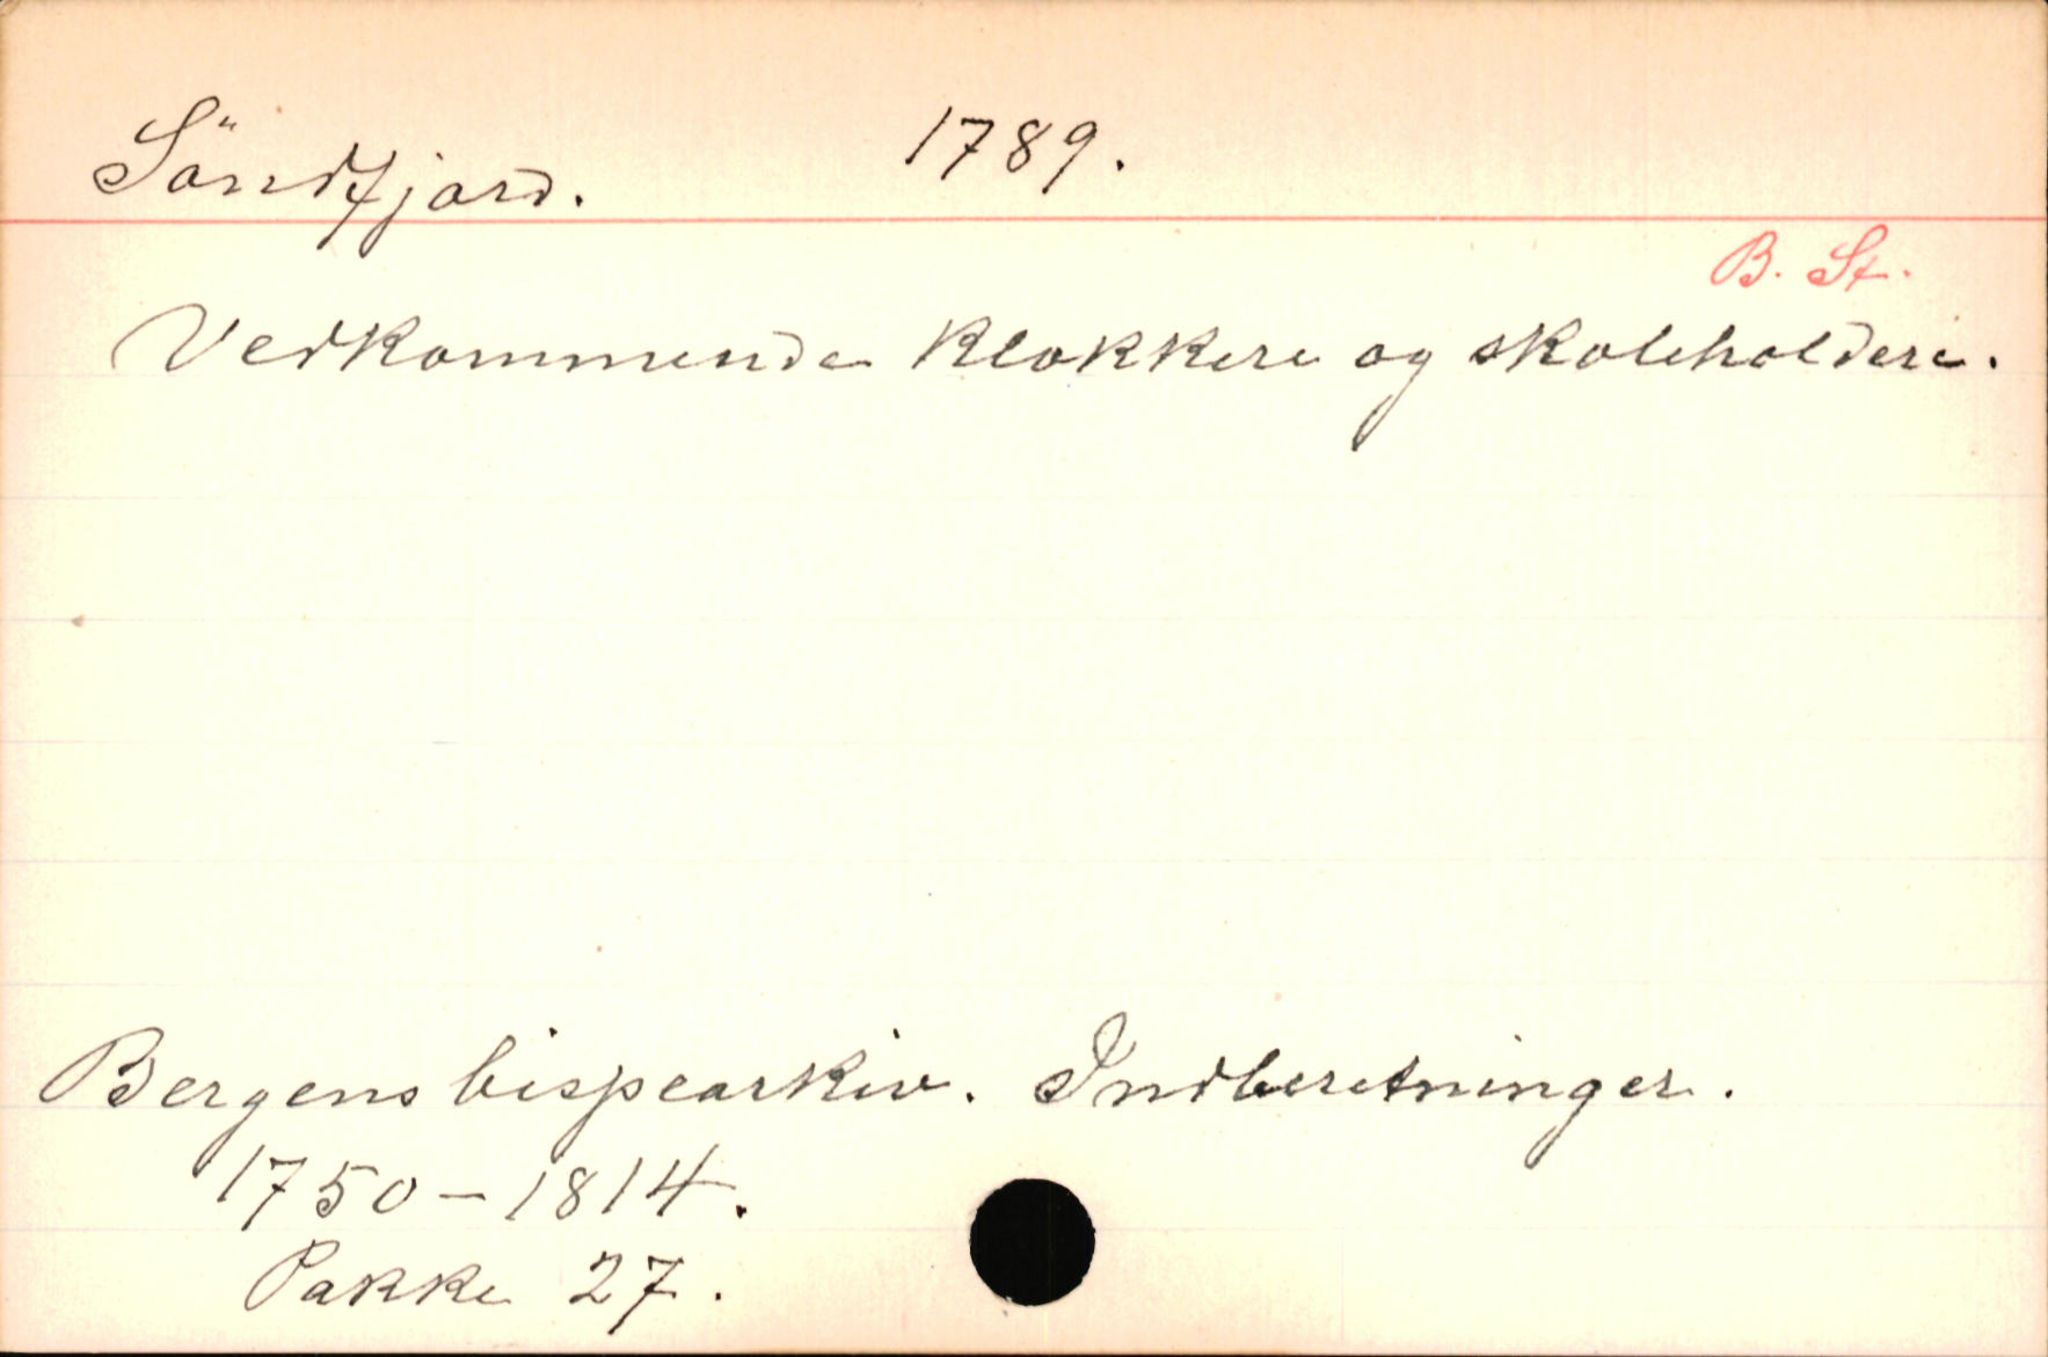 Söndfjord. 1789.
B. St.
Vedkommende klokkere og skoleholdere.
Bergens bispearkiv. Indberetninger.
1750-1814.
Pakke 27.